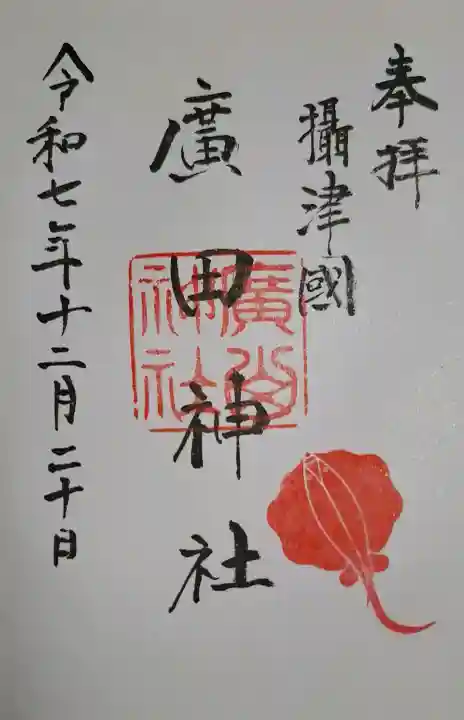 奉拝
攝津國
廣田神社
廣田
神社
令和七年十二月二十日